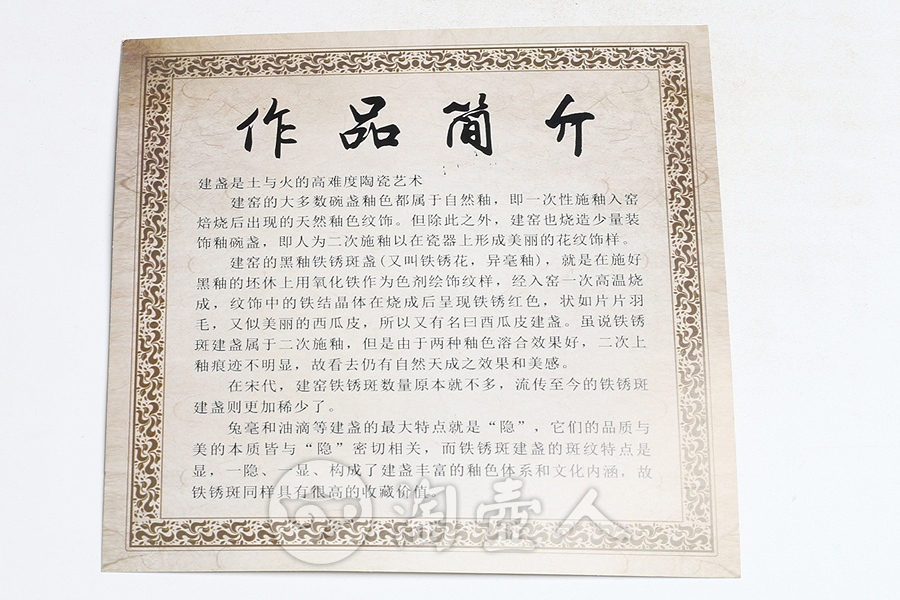 作品简介
建盏是土与火的高难度陶瓷艺术
建窑的大多数碗盏釉色都属于自然釉，即一次性施釉入窑
焙烧后出现的天然釉色纹饰。但除此之外，建窑也烧造少量装
饰釉碗盏，即人为二次施釉以在瓷器上形成美丽的花纹饰样。
建窑的黑釉铁锈斑盏(又叫铁锈花，异毫釉)，就是在施好
黑釉的坯休上用氧化铁作为色剂绘饰纹样，经入窑一次高温烧
成，纹饰中的铁结晶体在烧成后呈现铁锈红色，状如片片羽
毛，又似美丽的西瓜皮，所以又有名曰酉瓜皮建盏。虽说铁锈
斑建盏属于二次施釉，但是由于两种釉色溶合效果好，二次上
釉痕迹不明显，故看去仍有自然天成之效果和美感。
在宋代，建窑铁锈斑数量原本就不多，流传至今的铁锈斑
建盏则更加稀少了。
兔毫和油滴等建盏的最大特点就是“隐”，它们的品质与
美的本质皆与“隐”密切相关，而铁锈斑建盏的斑纹特点是
显，一隐、一显、构成了建盏丰富的釉色体系和文化内涵，故
铁锈斑同样具有很高的收藏价值。
淘壶人